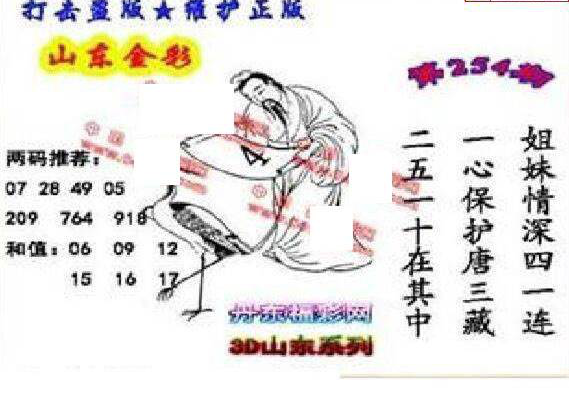 打击盗版★维护正版
山东金彩
第254期
姐妹情深四一连
一心保护唐三藏
二五一十在其中
两码推荐：
07 28 49 05
209 764 918
和值：06 09 12
15 16 17
4
丹东福彩网
3D山东系列